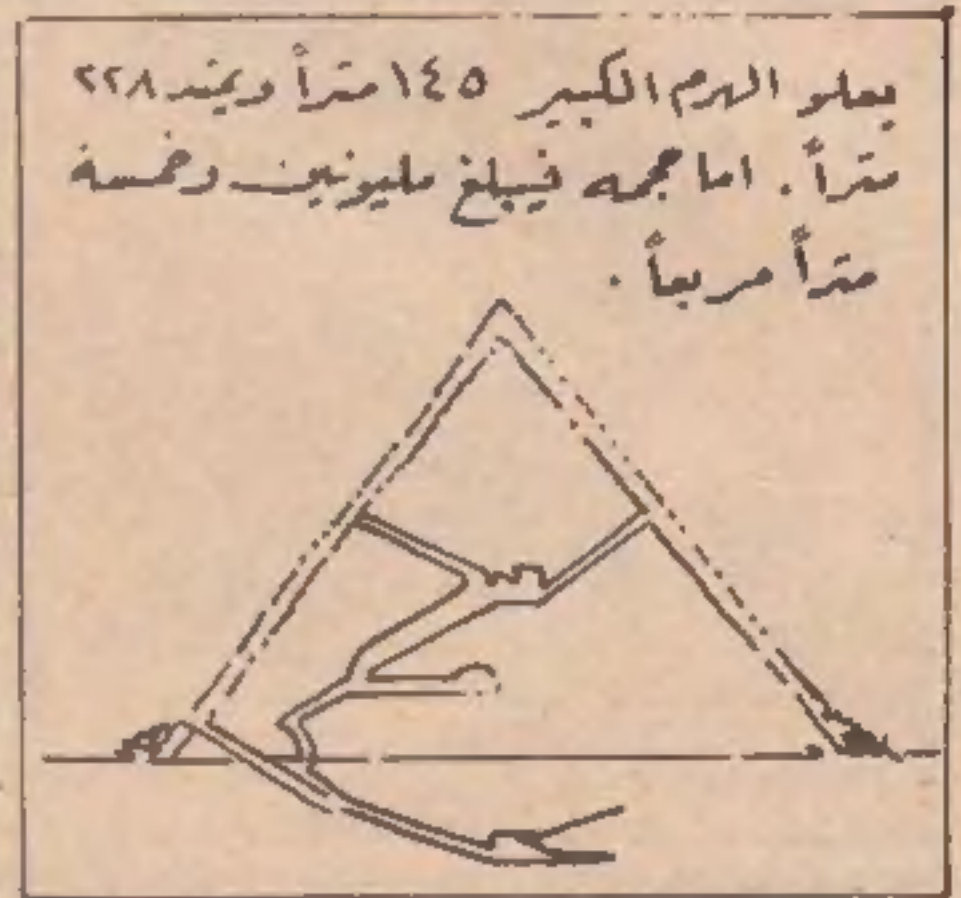 يعلو الهرم الكبير ١٤٥ متراً ويمتد ٢٢٨
متراً . اما حجمه فيبلغ مليونين وخمسة
متراً مربعاً .